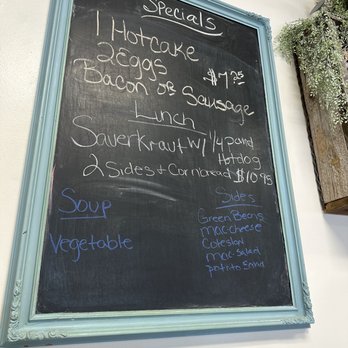 Specials
1 Hotcake
2 Eggs
Bacon or Sausage $7.25
Lunch
Sauerkraut W/ 1/4 pand
Hotdog
2 Sides & Cornbread $10.95
Soup
Vegetable
Sides
Green Beans
mac-cheese
Coleslaw
mac-Salad